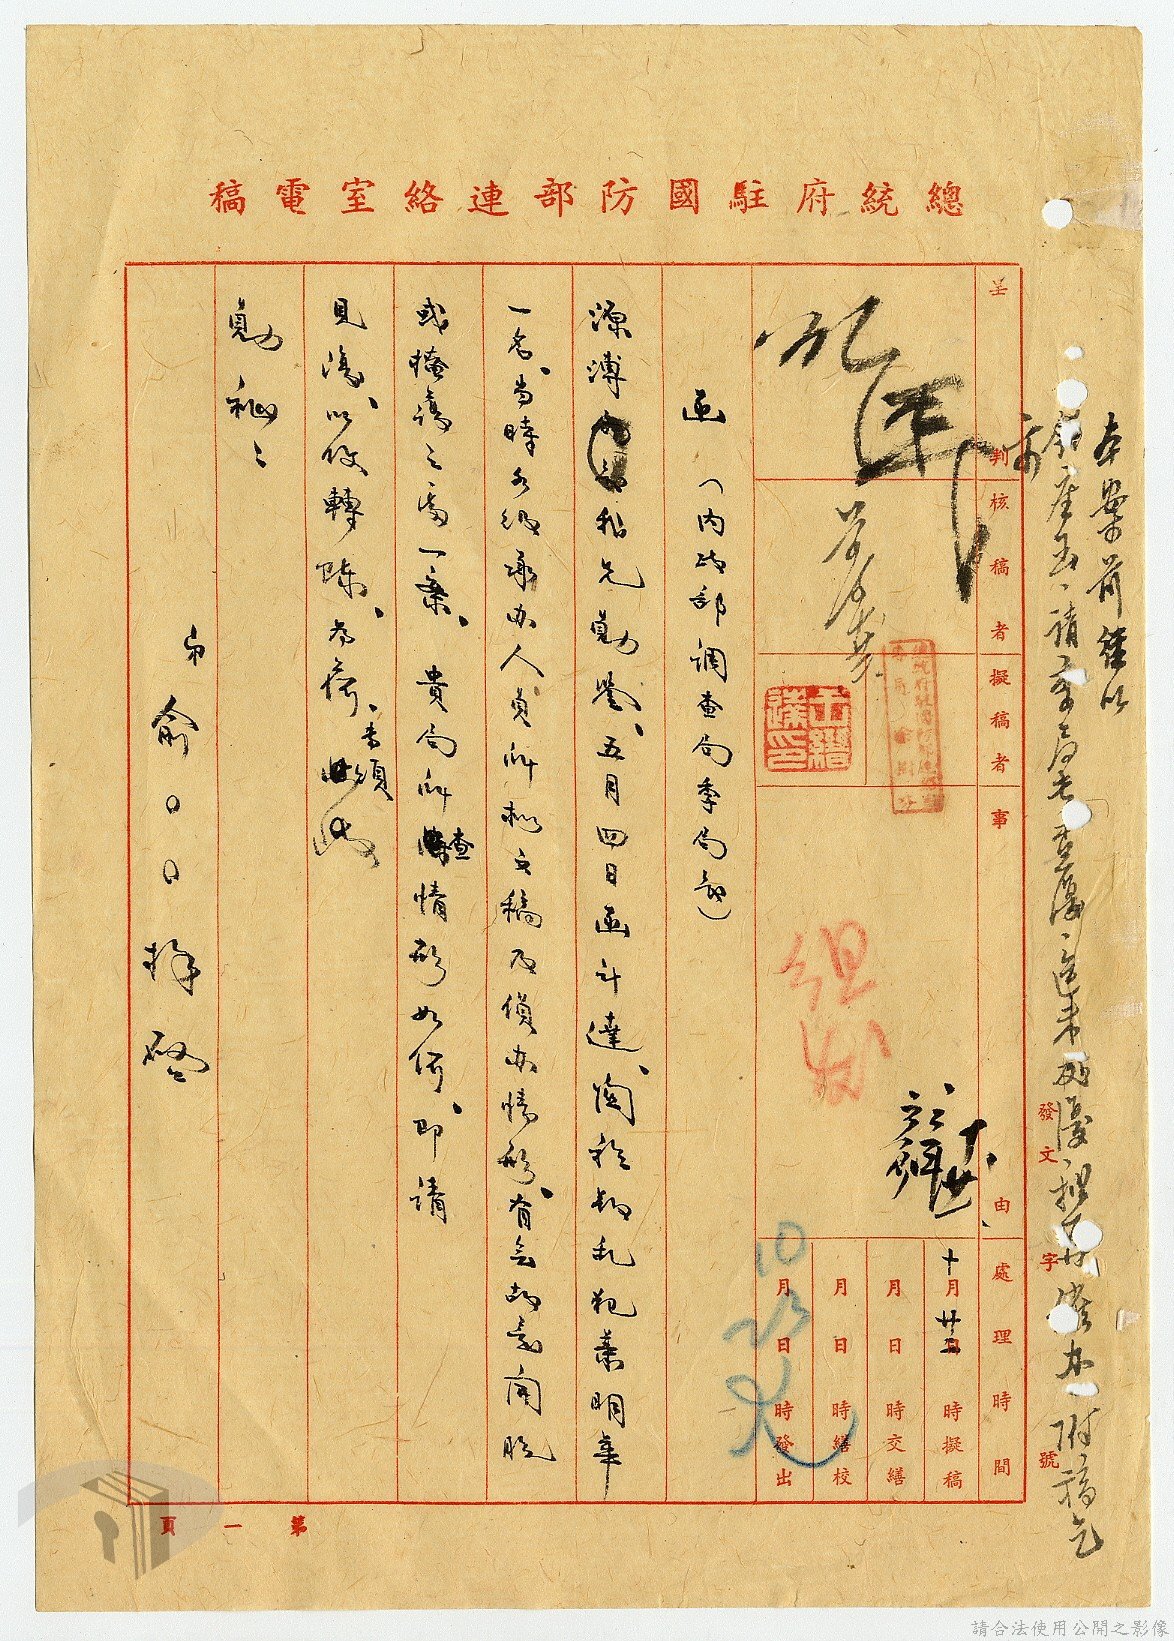 總統府駐國防部連絡室電稿
呈
判
核稿者
擬稿者
事
由
處理時間
發文
字
號
十月廿三日時擬稿
月日時交繕
月日時繕校
月日時發出
10
23
函(內政部調查局季局長)
源溥 兄勛鑒、五月四日函計達、關於叛亂犯蕭明華
一名、當時各級承辦人員所擬文稿及偵辦情形、有無故意開脫
或掩護之處一案、貴局所查情形如何、即請
見復、以便轉陳、為荷、專頌
勛祉
弟俞〇〇拜啓
本案前經以
鈞座函、請季局長查復、迄未 復、擬再 辦、附稿乞
示
第一頁
請合法使用公開之影像